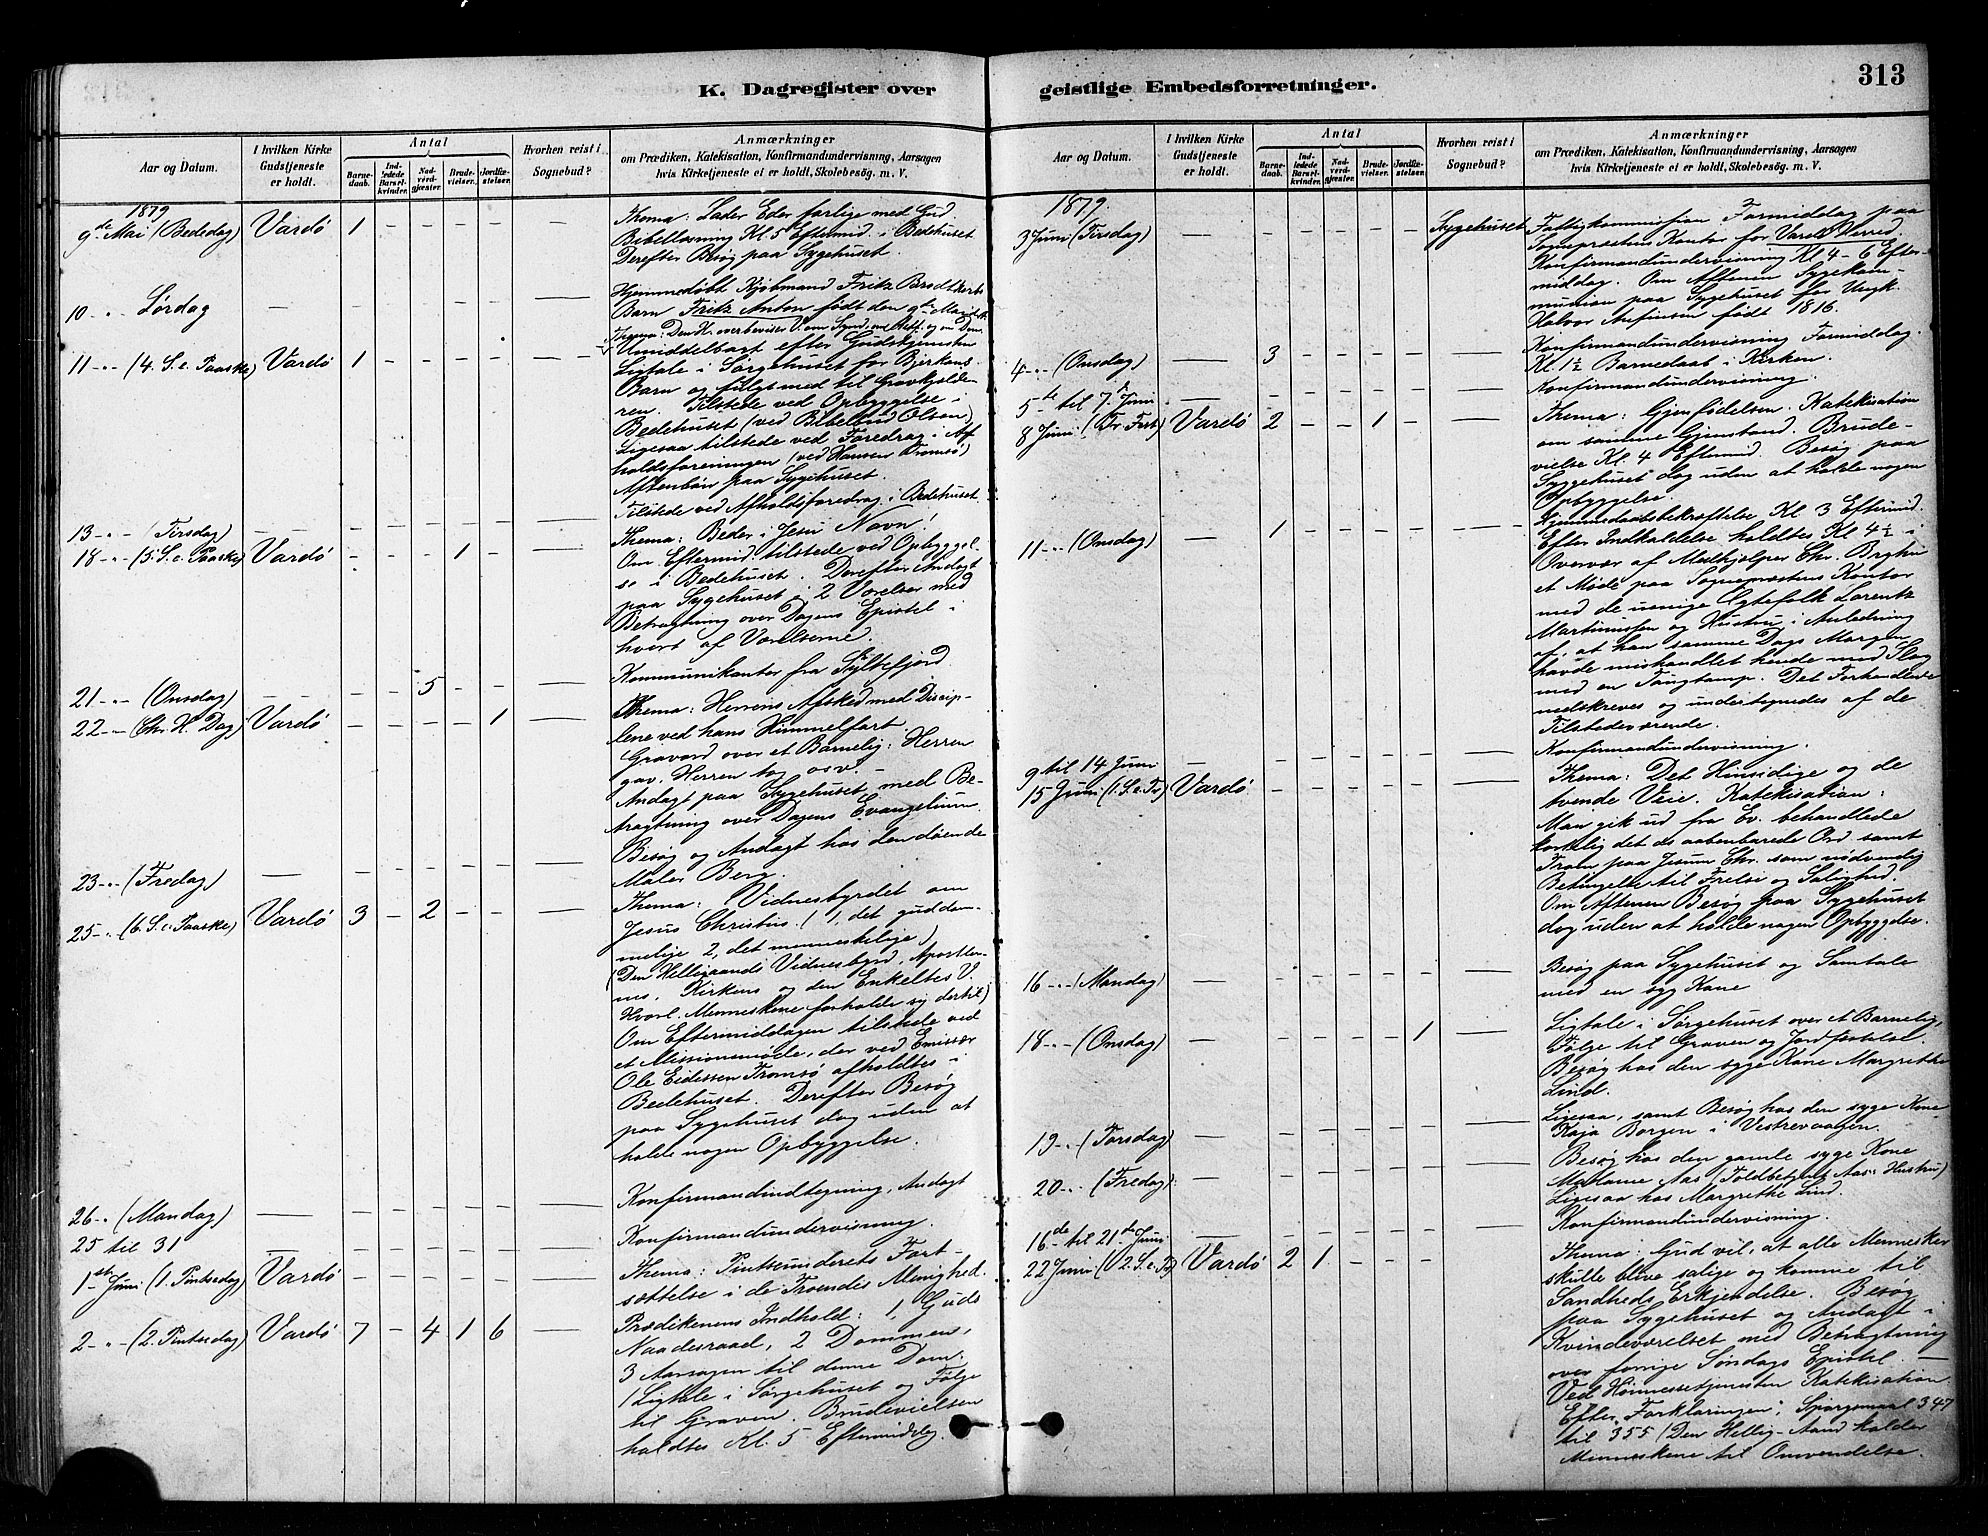 K. Dagregister over geistlige Embedsforretninger.
313
Aar og Datum.
I hvilken Kirke Gudstjeneste er holdt.
Antal
Barnedaab.
Indledede Barselkvinder.
Nadverdgjester.
Brudevielser.
Jordfæstelser.
Hvorhen reist i Sognebud?
Anmærkninger
om Prædiken, Katekisation, Konfirmandundervisning, Aarsagen
hvis Kirketjeneste ei er holdt, Skolebesøg, m. V.
1879
9de Mai (Bededag) Vardö 1 - - - - —
Thema: Lader Eder forlige med Gud.
Bibellæsning Kl. 5 Eftermid. i Bedehuset
Derefter Besøg paa Sygehuset.
10 -"- Lørdag — - - - - - —
Hjemmedöbt Kjöbmand Fritz Brodtkorbs
Barn Fritz Anton født den 9de
11 -"- (4. S. e. Paaske) Vardö 1 - - - - —
Thema: Den H. overbeviser V. om Synd, om Retf. og om Dom.
Umiddelbart efter Gudstjenesten
Ligtale i Sørgehuset for
Barn og fulgt med til
ren. Tilstede ved Opbyggelse i
Bedehuset (ved Bibelbud Olsen)
Ligesaa tilstede ved Foredrag i Af
holdsforeningen (ved Hansen Tromsö)
Aftenbön paa Sygehuset.
13 -"- (Tirsdag) — - - - - - —
Tilstede ved Afholdsforedrag i Bedehuset
18 -"- (5. S. e. Paaske) Vardö - - - 1 - —
Thema: Beder i Jesu Navn!
Om Eftermid. tilstede ved Opbyggel-
se i Bedehuset. Derefter Andagt
paa Sygehuset i 2 Værelser med
Betragtning over Dagens Epistel i
hvert af Værelserne.
21 -"- (Onsdag) — - - 5 - - —
Kommunikanter fra Syltefjord.
22 -"- (Chr. H. Dag) Vardö - - - - 1 —
Thema: Herrens Afsked med Discip-
lene ved hans Himmelfart.
Gravord over et Barnelig: Herren
gav, Herren tog osv. -
Andagt paa Sygehuset med Be-
tragtning over Dagens Evangelium.
23 -"- (Fredag) — - - - - - —
Besøg og Andagt hos den döende
Maler Berg.
25 -"- (6. S. e. Paaske) Vardö 3 - 2 - - —
Thema: Vidnesbyrdet om
Jesus Christus (1, det guddom-
melige 2, det menneskelige)
(Den Helligaands Vidnesbyrd, Apostler-
nes, Kirkens og den Enkeltes V.
Hvorl. Menneskene forholde sig dertil)
Om Eftermiddagen tilstede ved
et Missionsmøde, der ved Emissær
Ole Eidessen Tromsö afholdtes i
Bedehuset. Derefter Besøg
paa Sygehuset dog uden at
holde nogen Opbyggelse.
26 -"- (Mandag) — - - - - - —
Konfirmandindtegning, Andagt
25 til 31 — - - - - - —
Konfirmandundervisning.
1ste Juni (1. Pintsedag) Vardö - - - - - —
Thema: Pintseunderets Fort-
sættelse i de Troendes Menighed.
2 -"- (2. Pintsedag) Vardö 7 - 4 1 6 —
Prædikenens Indhold: 1, Guds
Naadesraad, 2 Dommen,
3 Aarsagen til denne Dom.
1 Ligtale i Sørgehuset og Følge
til Graven. Brudevielsen
holdtes Kl. 5 Eftermiddag.
Aar og Datum.
I hvilken Kirke Gudstjeneste er holdt.
Antal
Barnedaab.
Indledede Barselkvinder.
Nadverdgjester.
Brudevielser.
Jordfæstelser.
Hvorhen reist i Sognebud?
Anmærkninger
om Prædiken, Katekisation, Konfirmandundervisning, Aarsagen
hvis Kirketjeneste ei er holdt, Skolebesøg, m. V.
1879.
3 Juni (Tirsdag) — - - - - - Sygehuset
Fattigkommission Formiddag paa
Sognepræstens Kontor for Vardö Herred.
Konfirmandundervisning Kl 4-6 Efter-
middag. Om Aftenen Sygekom-
munion paa Sygehuset for Ungk.
Halvor Anfinsen født 1816.
4 -"- (Onsdag) — 3 - - - - —
Konfirmandundervisning Formiddag.
Kl. 1½ Barnedaab i Kirken.
5te til 7. Juni — - - - - - —
Konfirmandundervisning.
8 Juni (Tr. Fest) Vardö 2 - - 1 - —
Thema: Gjenfödelsen. Katekisation
om samme Gjenstand. Brude-
vielse Kl. 4 Eftermid. Besøg paa
Sygehuset dog uden at holde nogen
Opbyggelse.
11 -"- (Onsdag) — 1 - - - - —
Hjemmedaabsbekræftelse Kl. 3 Eftermid.
Efter Indkaldelse holdtes Kl. 4½ i
Overvær af Medhjelper Chr.
et Møde paa Sognepræstens Kontor
med de uenige Ægtefolk Lorentz
Martinussen og Hustru i Anledning
af, at han samme Dags Morgen
havde mishandlet hende med Slag
med en Tougtamp. Det Forhandlede
nedskreves og undertegnedes af de
Tilstedeværende.
9 til 14 Juni — - - - - - —
Konfirmandundervisning.
15 Juni (1. S. e. Tr.) Vardö - - - - - —
Thema: Det Hinsidige og de
tvende Veie. Katekisation:
Man gik ud fra Ev. behandlede
kortelig det os aabenbarede Ord samt
Troen paa Jesum Chr. som nødvendig
Betingelse til Frelse og Salighed.
Om Aftenen Besøg paa Sygehuset
dog uden at holde nogen Opbyggelse.
16 -"- (Mandag) — - - - - - —
Besøg paa Sygehuset og Samtale
med en syg Kone
18 -"- (Onsdag) — - - - - 1 —
Ligtale i Sørgehuset over et Barnelig,
Følge til Graven og
Besøg hos den syge Kone Margrethe
Lind.
19 -"- (Torsdag) — - - - - - —
Ligesaa, samt Besøg hos den syge Kone
Kaja Borgen i Vestrevaagen.
20 -"- (Fredag) — - - - - - —
Besøg hos den gamle syge Kone
Madame Aas (Toldbetjent Aas' Hustru)
Ligesaa hos Margrethe Lind.
16de til 21de Juni — - - - - - —
Konfirmandundervisning.
22 Juni (2. S. e. Tr) Vardö 2 1 - - - —
Thema: Gud vil, at alle Mennesker
skulle blive salige og komme til
Sandheds Erkjendelse. Besøg
paa Sygehuset og Andagt i
Kvindeværelset med Betragtning
over forrige Søndags Epistel. -
Ved Høimessetjenesten Katekisation
Efter Forklaringen: Spørgsmaal 347
til 355 (Den Hellig-Aand kalder
Menneskene til Omvendelse